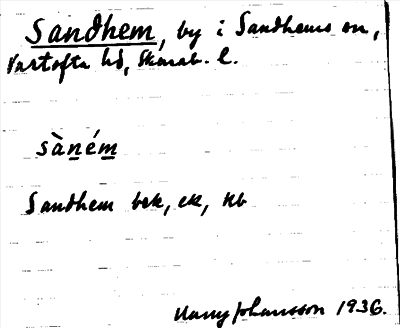 Sandhem, by i Sandhems sn,
Vartofta hd, Skarab. l.
sàném
Sandhem bek, ek, kb
Harry Johansson 1936.